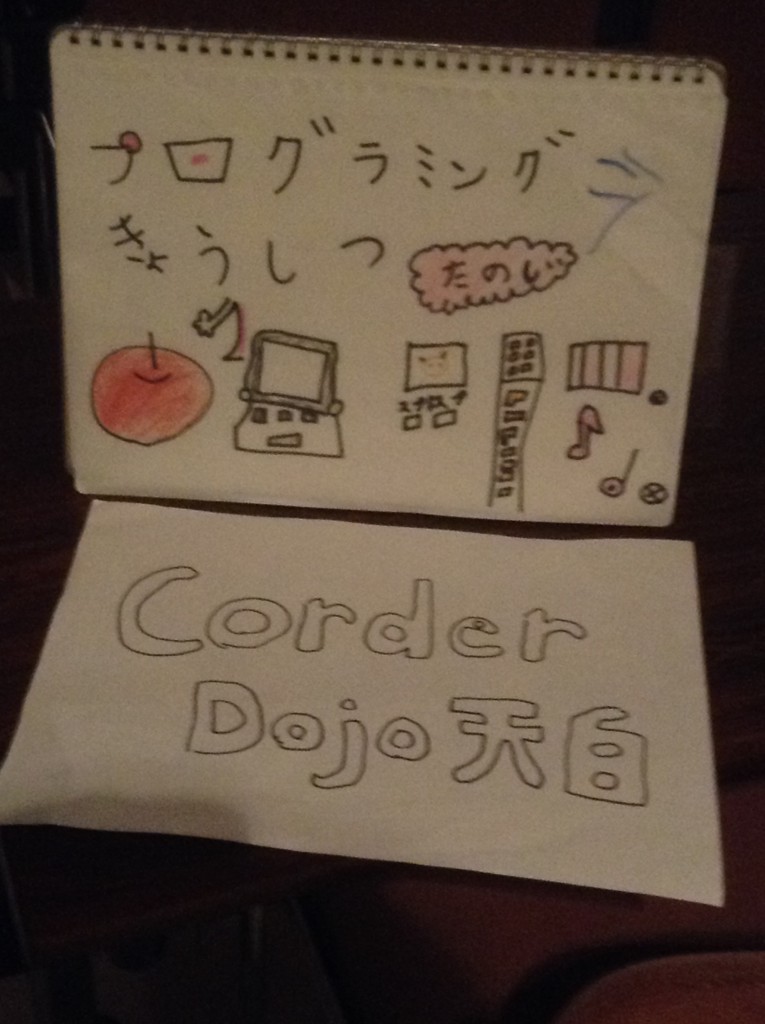 プログラミング
きょうしつ
たのしい
Corder
Dojo天白